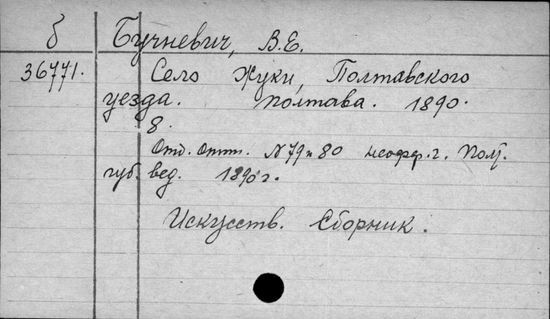 б Бучневич, В.Е.
36771. Село Жуки, Полтавского
уезда. Полтава. 1890.
8.
Отд. Отт. N79 и 80 неофф. ч. Полт.
губ. вед. 1890 г.
Искусств. Сборник.